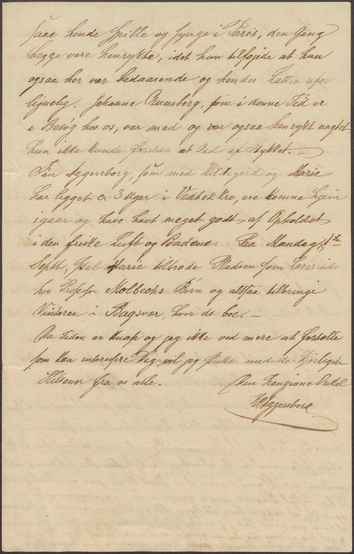 saae hende spille og synge i Eros, den Gang
begge vare henrykte, idet hun tilføjede at hun
ogsaa der var bedaarende og hendes Latter
Johanne Bensberg, som i denne Tid er
i Besøg hos os, var med og var ogsaa henrykt uagtet
hun ikke kunde forstaa et Ord af Stykket. —
Fru Eggenborg, som med Hildegerd og Marie
har ligget 3 Uger i Vedbæk Kro, ere komne hjem
igaar og have havt meget godt af Opholdet
i den friske Luft og Badene. Paa Mandag
Sept. skal Marie tiltræde Pladsen som Lærerinde
hos Profs. Børn og altsaa tilbringe
Vinteren i Bagsvær, hvor de bor. —
Da Tiden er knap og jeg ikke ved mere at fortælle
som kan interessere Dig, vil jeg slutte med de kjærligste
Hilsener fra os alle. Din hengivne Onkel
Eggenborg